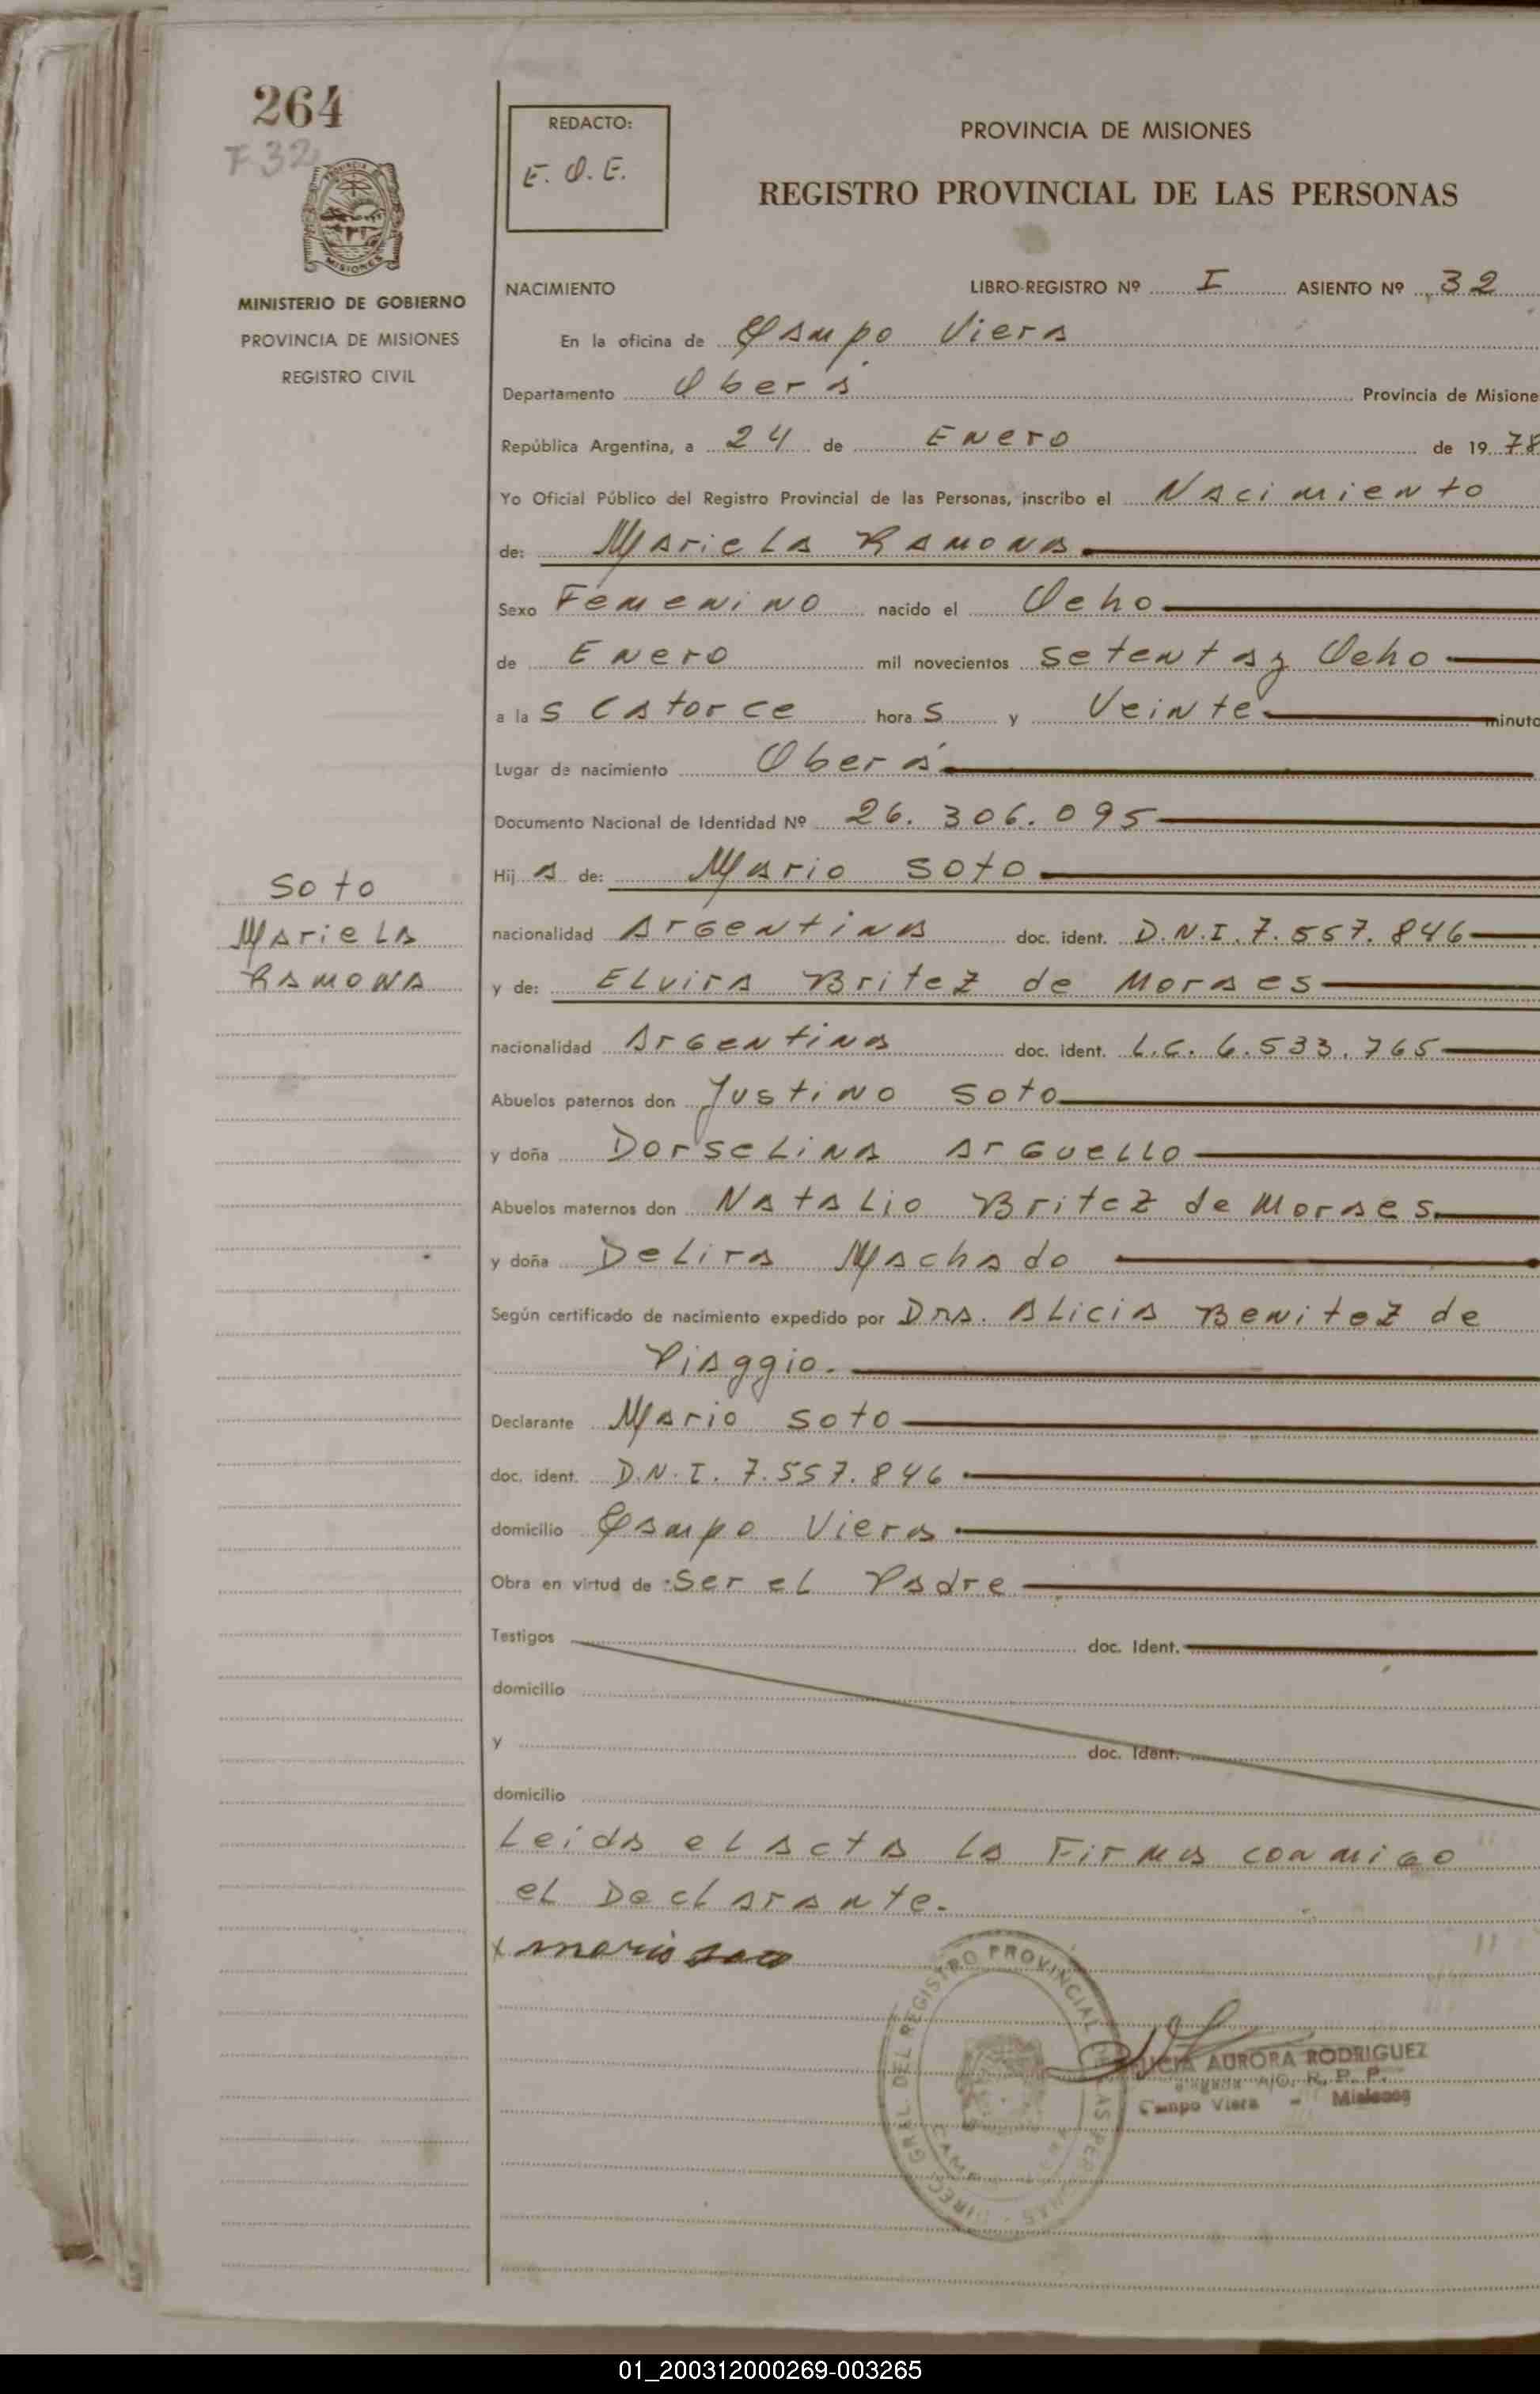 264
F 32
PROVINCIA
MISIONES
MINISTERIO DE GOBIERNO
PROVINCIA DE MISIONES
REGISTRO CIVIL
Soto
Mariela
Ramona
REDACTO:
E. O. E.
PROVINCIA DE MISIONES
REGISTRO PROVINCIAL DE LAS PERSONAS
NACIMIENTO LIBRO-REGISTRO Nº I ASIENTO Nº 32
En la oficina de Campo Viera
Departamento Oberá Provincia de Misione
República Argentina, a 24 de Enero de 1978
Yo Oficial Público del Registro Provincial de las Personas, inscribo el Nacimiento
de: Mariela Ramona
Sexo Femenino nacido el Ocho
de Enero mil novecientos Setenta y Ocho
a las Catorce horas y Veinte minuto
Lugar de nacimiento Oberá
Documento Nacional de Identidad Nº 26.306.095
Hija de: Mario Soto
nacionalidad Argentina doc. ident. D.N.I. 7.557.846
y de: Elvira Britez de Moraes
nacionalidad Argentina doc. ident. L.C. 6.533.765
Abuelos paternos don Justino Soto
y doña Dorselina Arguello
Abuelos maternos don Natalio Britez de Moraes
y doña Delira Machado
Según certificado de nacimiento expedido por Dra. Alicia Benitez de
Viaggio.
Declarante Mario Soto
doc. ident. D.N.I. 7.557.846
domicilio Campo Viera
Obra en virtud de : Ser el Padre
Testigos doc. Ident.
domicilio
y doc. Ident.
domicilio
Leida el acta la Firma conmigo
el Declarante.
x mario soto
REGISTRO PROVINCIAL
AURORA RODRIGUEZ
R. P. P.
Campo Viera - Misiones
01_200312000269-003265